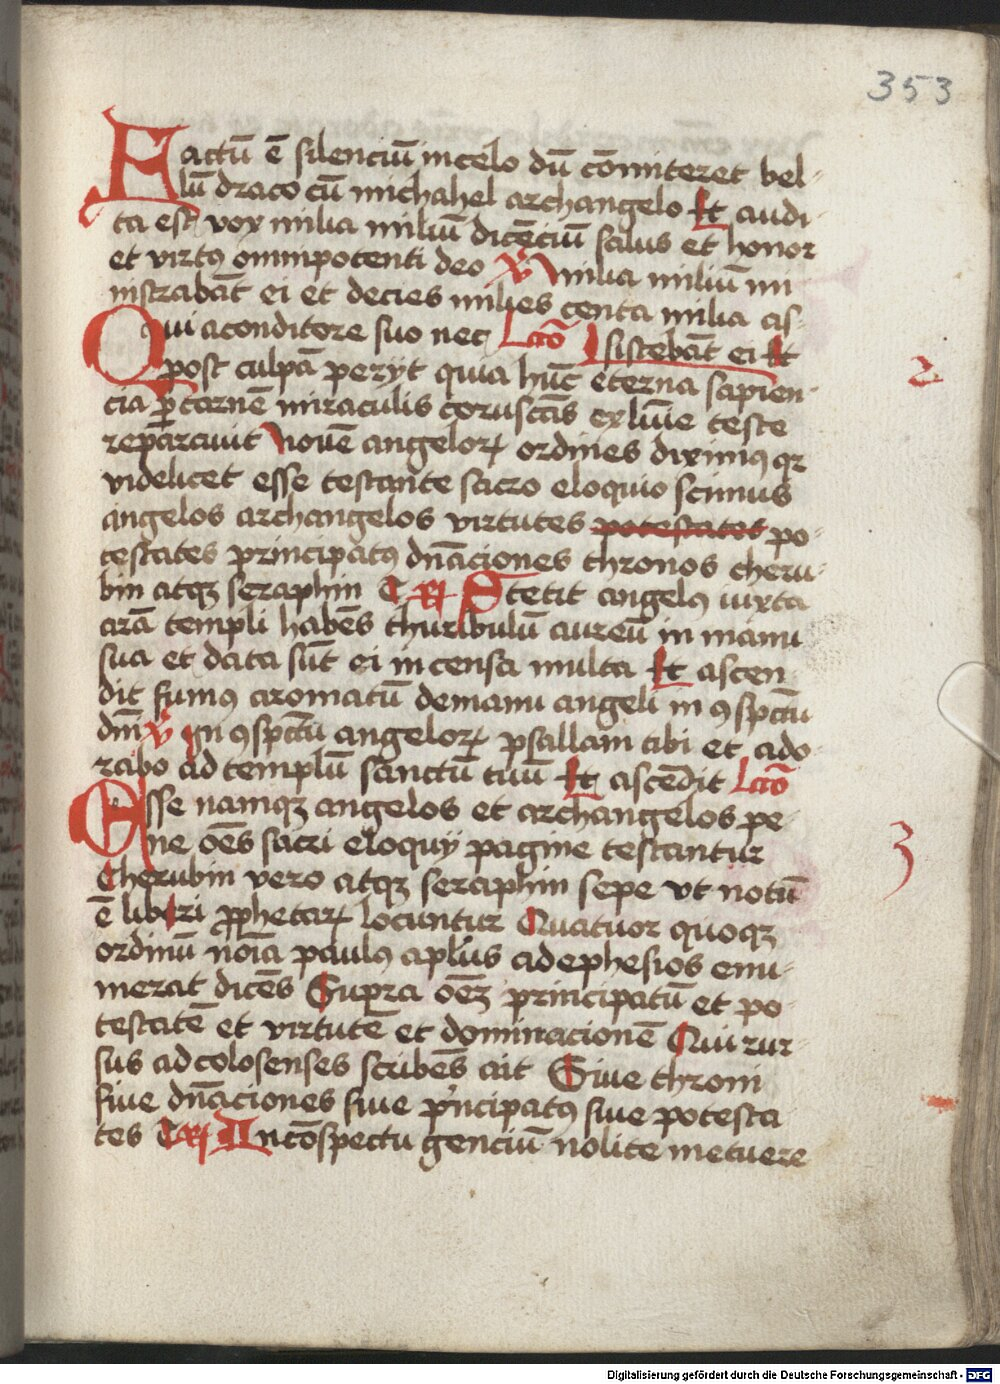 353
Factū ē silenciū in celo dū cōmitteret bel-
lū draco cū michahel archangelo Et audi-
ta est vox milia miliū dicēciū salus et honor
et virtꝰ omnipotenti deo ℣ Milia miliū mi
nistrabāt ei et decies milies centa milia as-
sistebāt ei Et
Qui a conditore suo nec Lc̄o
post culpā perijt quia hūc eterna sapien- 2
cia ꝑ carnē miraculis coruscās ex lūie teste
reparauit Nouē angeloꝝ ordines diximꝰ qꝛ
videlicet esse testante sacro eloquio scimus
angelos archangelos virtutes potestates po-
testates principatꝰ dn̄aciones thronos cheru-
bin atqꝫ seraphin ℟ Stetit angelꝰ iuxta
arā templi habēs thuribulū aureū in manu
sua et data sūt ei incensa multa Et ascen
dit fumꝰ aromatū de manu angeli in ꝯspc̄tu
dn̄i ℣ In ꝯspc̄tu angeloꝝ psallam tibi et ado-
rabo ad templū sanctū tuū Et ascēdit Lc̄o
Esse namqꝫ angelos et archangelos pe-
ne oēs sacri eloquij pagine testantur 3
Cherubin vero atqꝫ seraphin sepe vt notū
ē libri ꝓphetaꝝ locuntur Quatuor quoqꝫ
ordinū noīa paulꝰ aplūs ad ephesios enu-
merat dicēs Supra oēꝫ principatū et po-
testatē et virtutē et dominacionē Qui rur-
sus ad colosenses scribēs ait Siue throni
siue dn̄aciones siue pͥncipatꝰ siue potesta
tes ℟ In cōspectu genciū nolite metuere
Digitalisierung gefördert durch die Deutsche Forschungsgemeinschaft - DFG